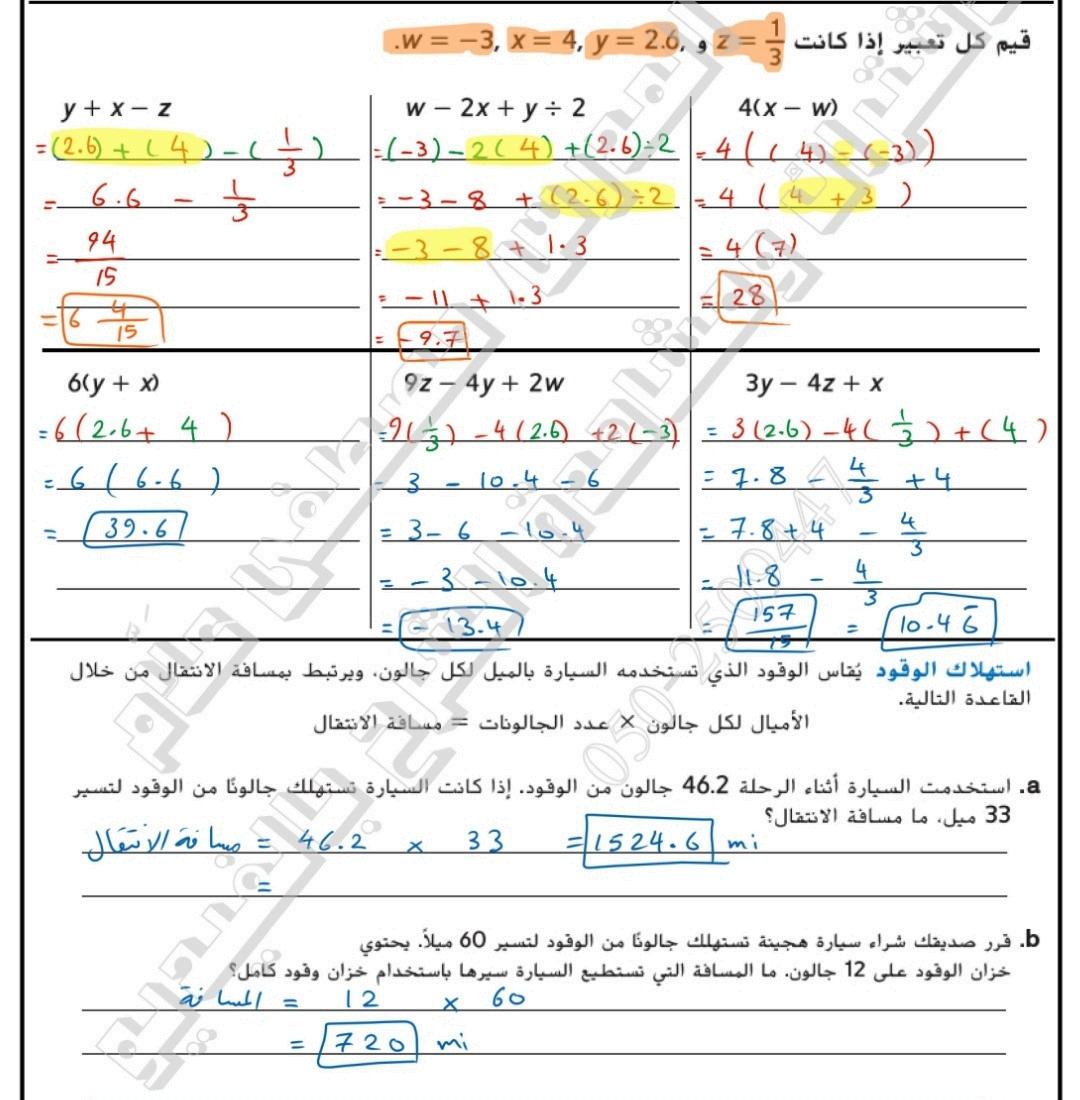 قيم كل تعبير إذا كانت z = 1/3 و w = −3, x = 4, y = 2.6,.
y + x − z
= (2.6) + (4) − (1/3)
= 6.6 − 1/3
= 94/15
= 6 4/15
w − 2x + y ÷ 2
= (−3) − 2(4) + (2.6) ÷ 2
= −3 − 8 + (2.6) ÷ 2
= −3 − 8 + 1.3
= −11 + 1.3
= −9.7
4(x − w)
= 4((4) − (−3))
= 4(4 + 3)
= 4(7)
= 28
6(y + x)
= 6(2.6 + 4)
= 6(6.6)
= 39.6
9z − 4y + 2w
= 9(1/3) − 4(2.6) + 2(−3)
= 3 − 10.4 − 6
= 3 − 6 − 10.4
= −3 − 10.4
= −13.4
3y − 4z + x
= 3(2.6) − 4(1/3) + (4)
= 7.8 − 4/3 + 4
= 7.8 + 4 − 4/3
= 11.8 − 4/3
= 157/15 = 10.46̅
استهلاك الوقود يُقاس الوقود الذي تستخدمه السيارة بالميل لكل جالون، ويرتبط بمسافة الانتقال من خلال
القاعدة التالية.
الأميال لكل جالون × عدد الجالونات = مسافة الانتقال
a. استخدمت السيارة أثناء الرحلة 46.2 جالون من الوقود. إذا كانت السيارة تستهلك جالونًا من الوقود لتسير
33 ميل، ما مسافة الانتقال؟
مسافة الانتقال = 46.2 × 33 = 1524.6 mi
=
b. قرر صديقك شراء سيارة هجينة تستهلك جالونًا من الوقود لتسير 60 ميلاً. يحتوي
خزان الوقود على 12 جالون. ما المسافة التي تستطيع السيارة سيرها باستخدام خزان وقود كامل؟
المسافة = 12 × 60
= 720 mi